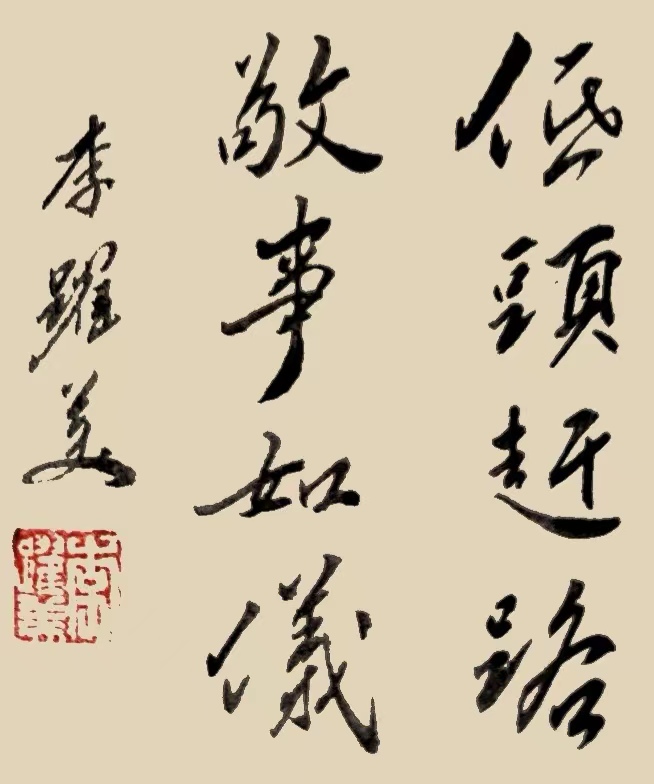 低頭赶路
敬事如儀
李躍美